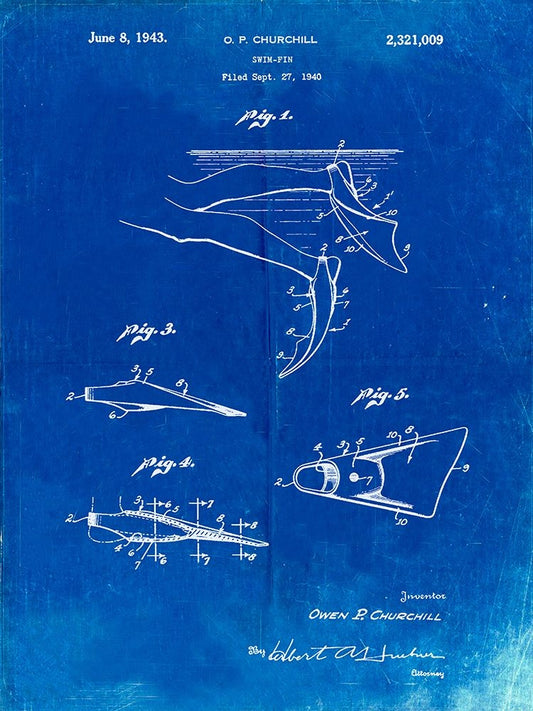 June 8, 1943.
O. P. CHURCHILL
2,321,009
SWIM-FIN
Filed Sept. 27, 1940
Fig. 1.
2
6
3
1'
5
10
8
10
9
2
3
6
5
7
8
1
9
Fig. 3.
3
5
8
2
6
Fig. 4.
3
6
7
5
8
8
2
4
6
7
6
7
8
Fig. 5.
4
3
5
10
8
2
7
9
10
Inventor
OWEN P. CHURCHILL
By
Attorney